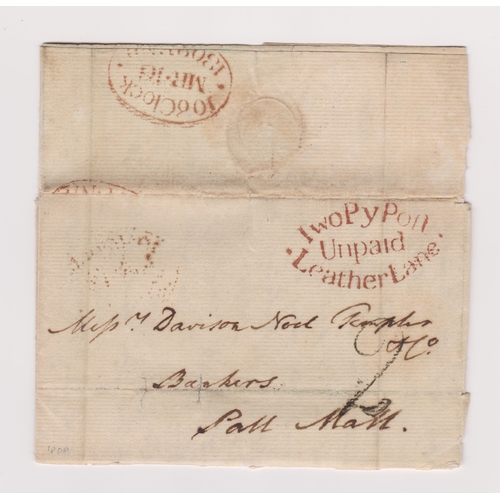 50 6Clock
MR·16
1809
TwoPyPoſt
Unpaid
LeatherLane
Meſsrs Davison Noel Templer
& Co.
Bankers
2
Pall Mall.